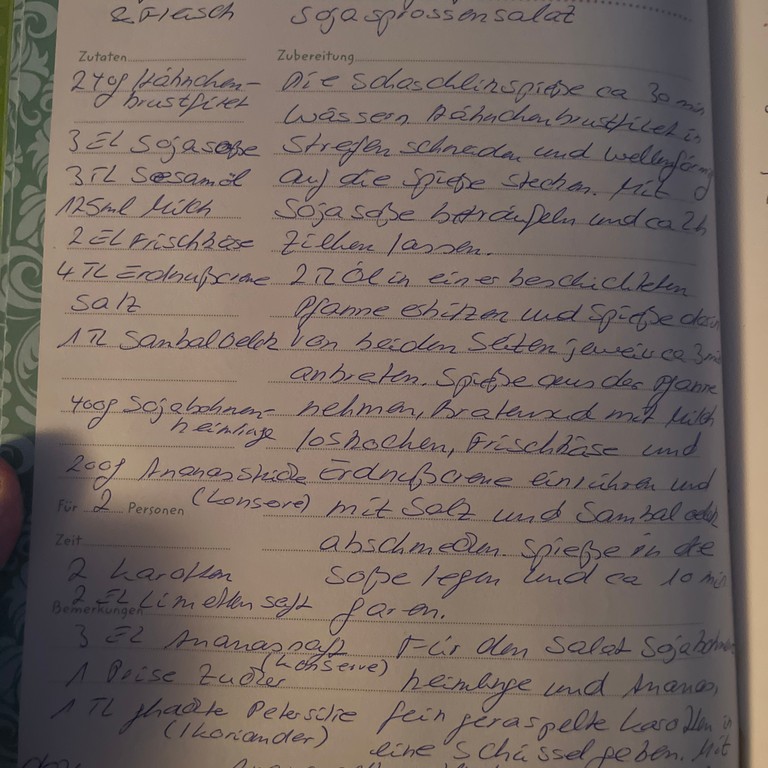 2. Fleisch Sojasprossensalat
Zutaten Zubereitung
240g Hähnchen- Die Schaschlikspieße ca 30 min
brustfilet wässern Hähnchenbrustfilet in
3 EL Sojasoße Streifen schneiden und wellenförmig
3 TL Sesamöl auf die Spieße stechen. Mit
125ml Milch Sojasoße beträufeln und ca 2h
2 EL Frischkäse ziehen lassen.
4 TL Erdnußcreme 2 TL Öl in einer beschichteten
Salz Pfanne erhitzen und Spieße darin
1 TL Sambal Oelek von beiden Seiten jeweils ca 3 min
anbraten. Spieße aus der Pfanne
400g Sojabohnen- nehmen, Bratensud mit Milch
keimlinge loskochen, Frischkäse und
200g Ananasstücke Erdnußcreme einrühren und
Für 2 Personen (Konserve) mit Salz und Sambal oelek
Zeit abschmecken. Spieße in die
2 Karotten Soße legen und ca 10 min
2 EL Limettensaft garen.
Bemerkungen
3 EL Ananassaft Für den Salat Sojabohnen
(Konserve)
1 Prise Zucker keimlinge und Ananas,
1 TL gehackte Petersilie fein geraspelte Karotten in
(1 Koriander) eine Schüssel geben. Mit